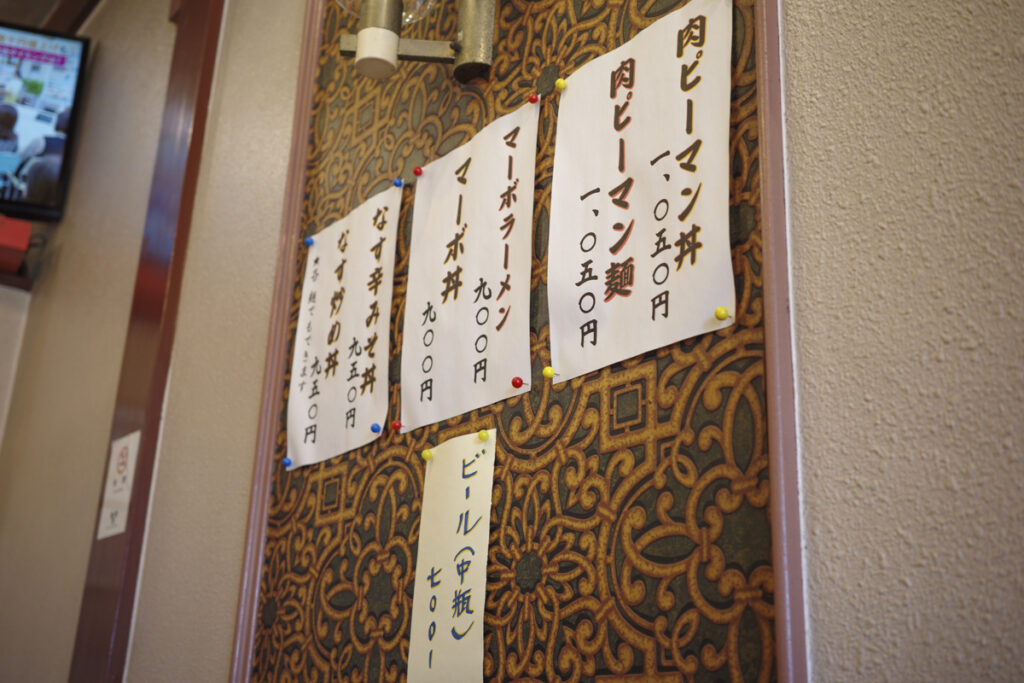 肉ピーマン丼
一、〇五〇円
肉ピーマン麺
一、〇五〇円
マーボラーメン
九〇〇円
マーボ丼
九〇〇円
なす辛みそ丼
九五〇円
なす炒め丼
九五〇円
★各 麺でもできます
ビール(中瓶)
七〇〇一